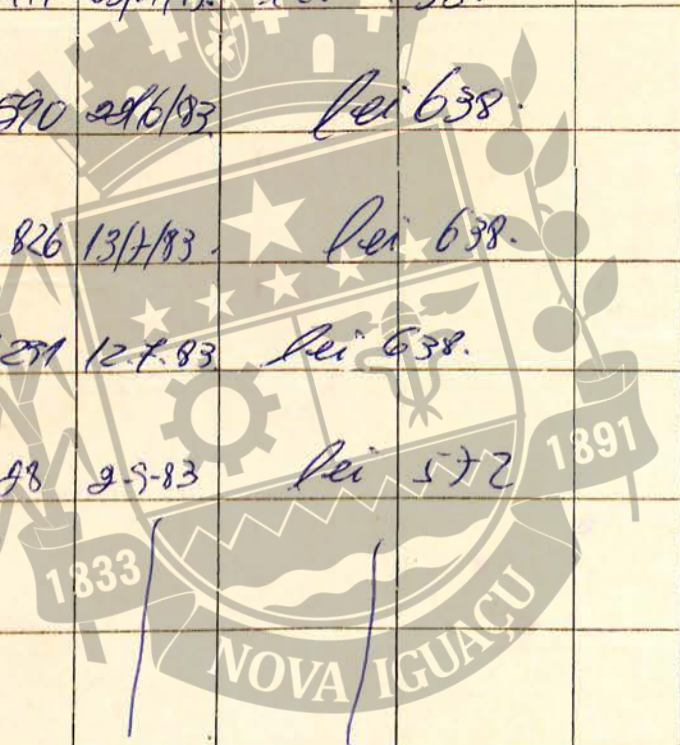 590 29/6/83 lei 638.
826 13/7/83. lei 638.
291 12.7.83 lei 638.
98 2-9-83 lei 572
1891
1833
NOVA IGUAÇU